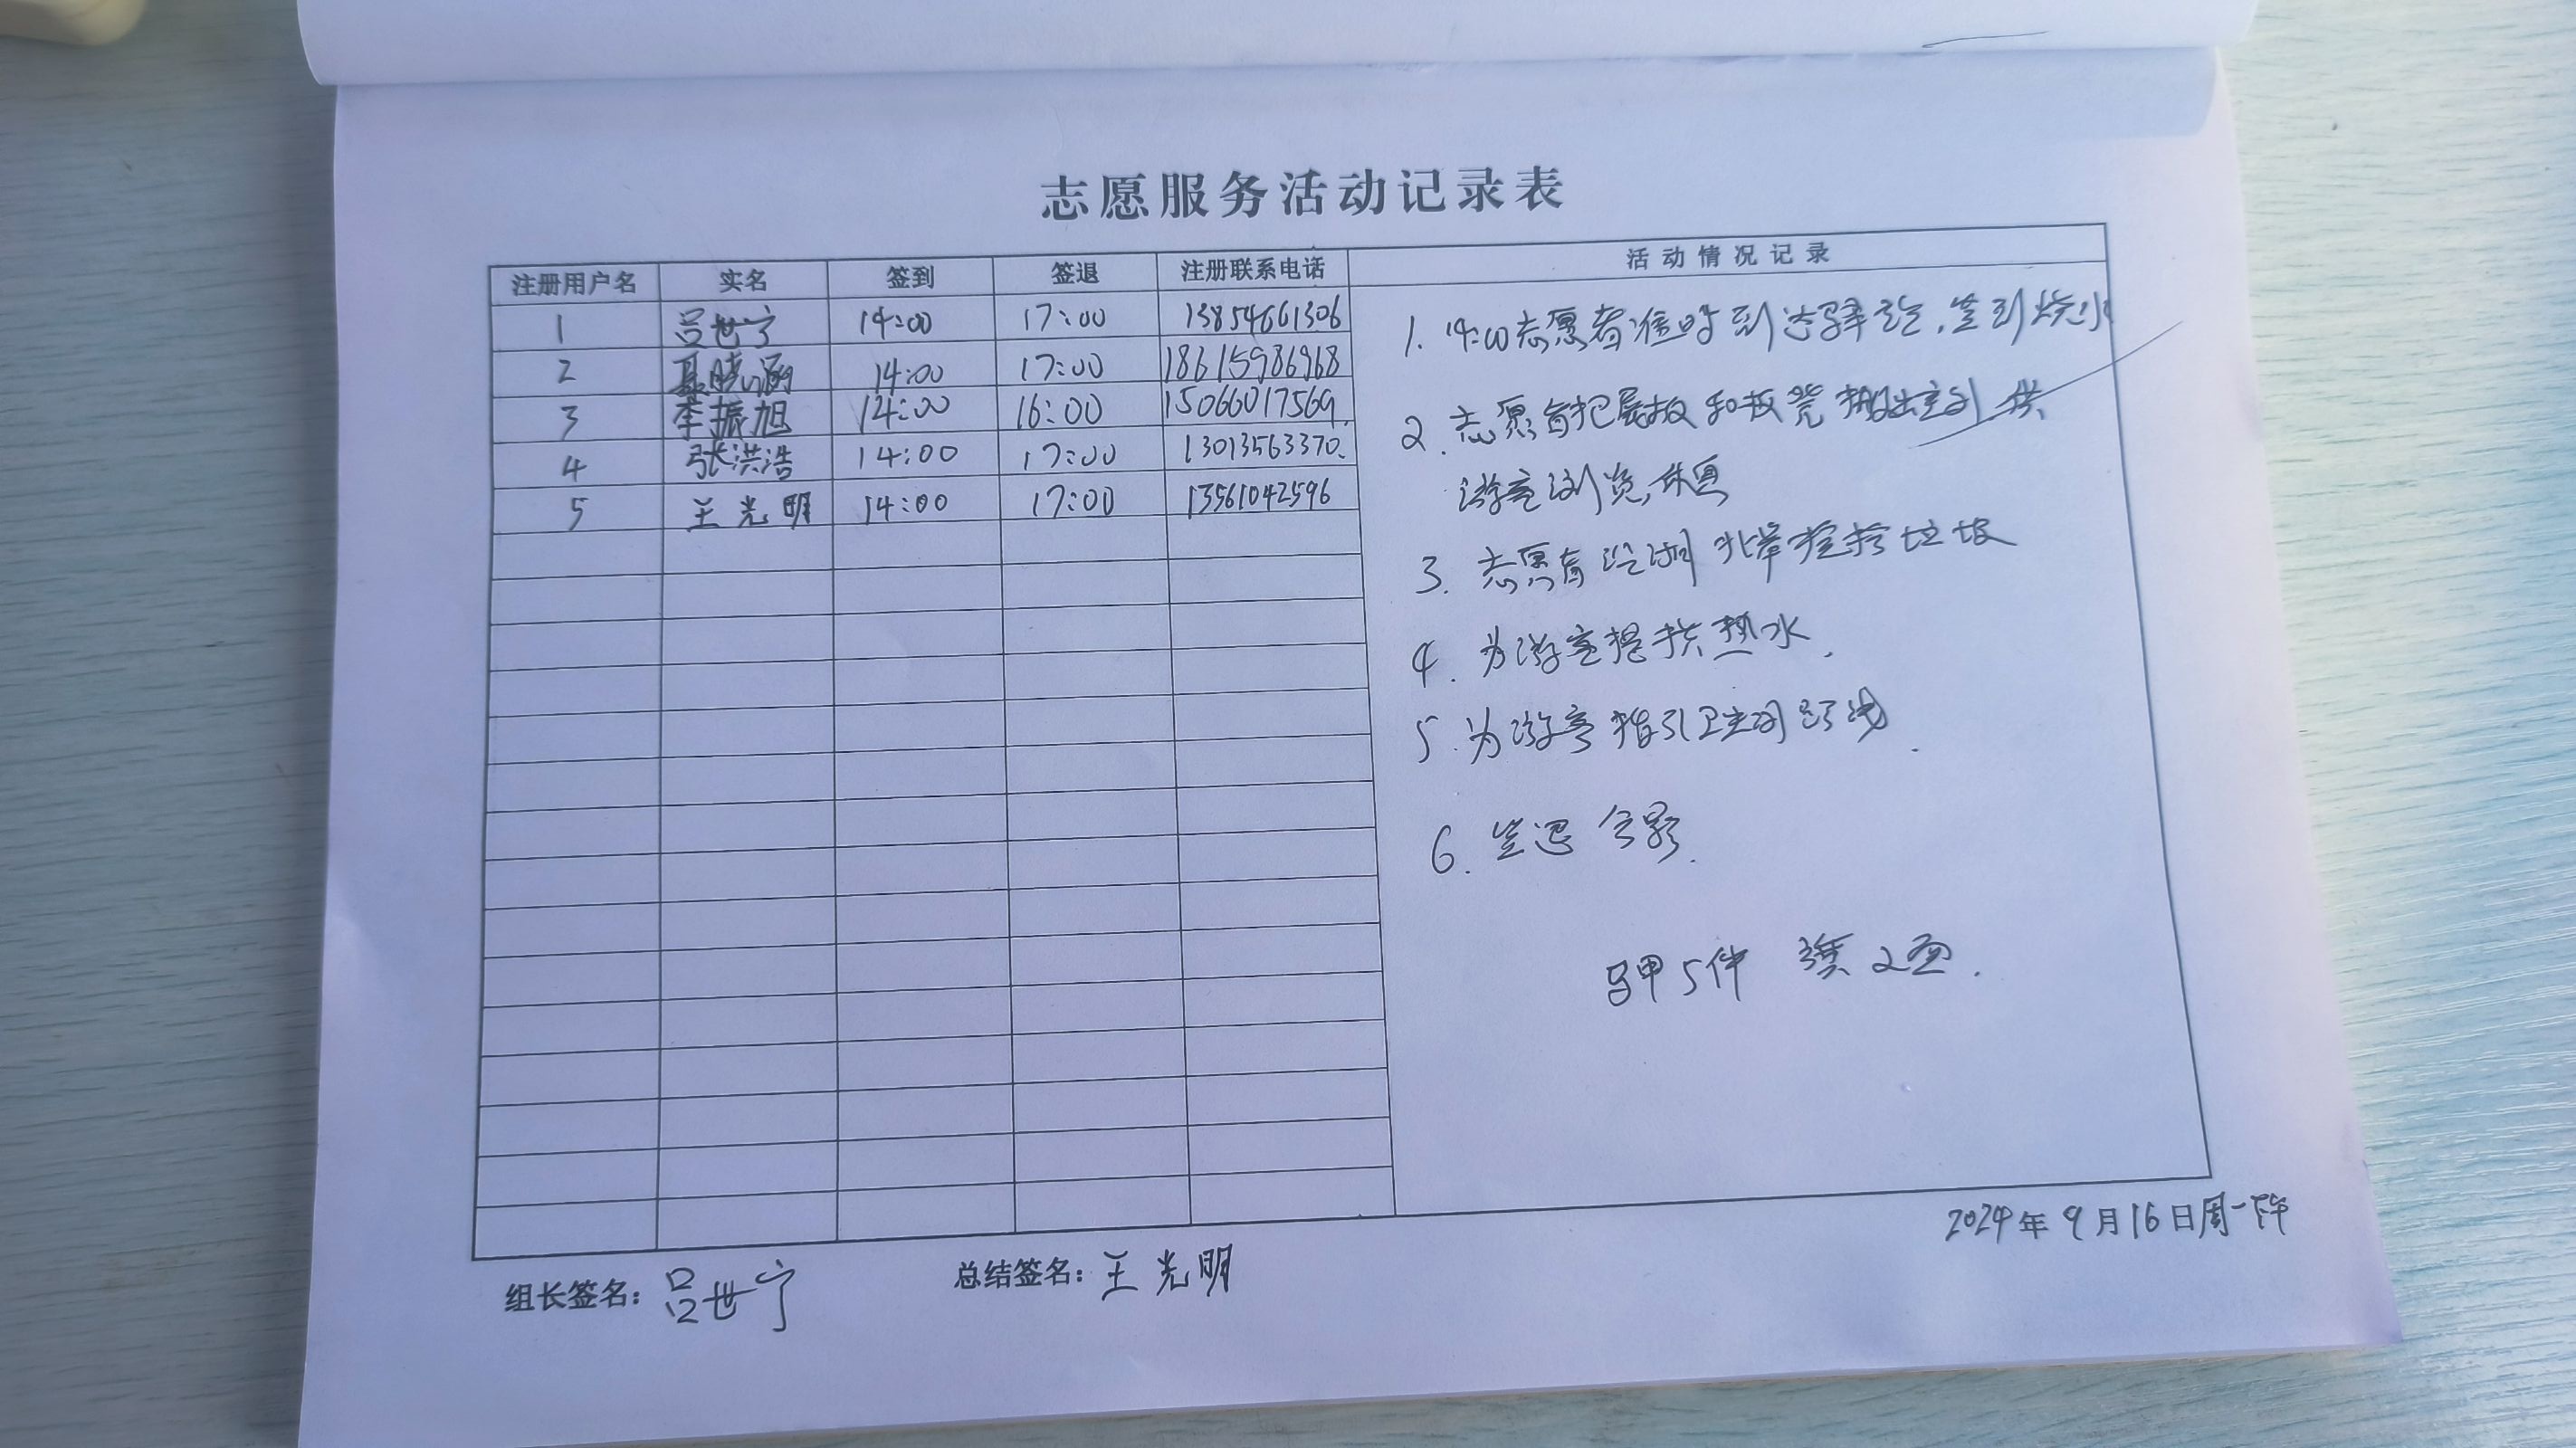 志愿服务活动记录表
注册用户名 实名 签到 签退 注册联系电话 活动情况记录
1 吕世宁 14:00 17:00 13854661306
2 聂晓涵 14:00 17:00 18615986968
3 李振旭 14:00 16:00 15066017569
4 张洪浩 14:00 17:00 13013563370
5 王光明 14:00 17:00 13561042596
1. 14:00志愿者准时到达驿站,签到烧水
2. 志愿者把展板和板凳搬出 供
游客浏览,休息
3. 志愿者沿湖 捡拾垃圾
4. 为游客提供热水.
5. 为游客指引卫生间路线.
6. 签退 合影.
马甲5件 旗2面.
2024年9月16日周一下午
组长签名: 吕世宁 总结签名: 王光明